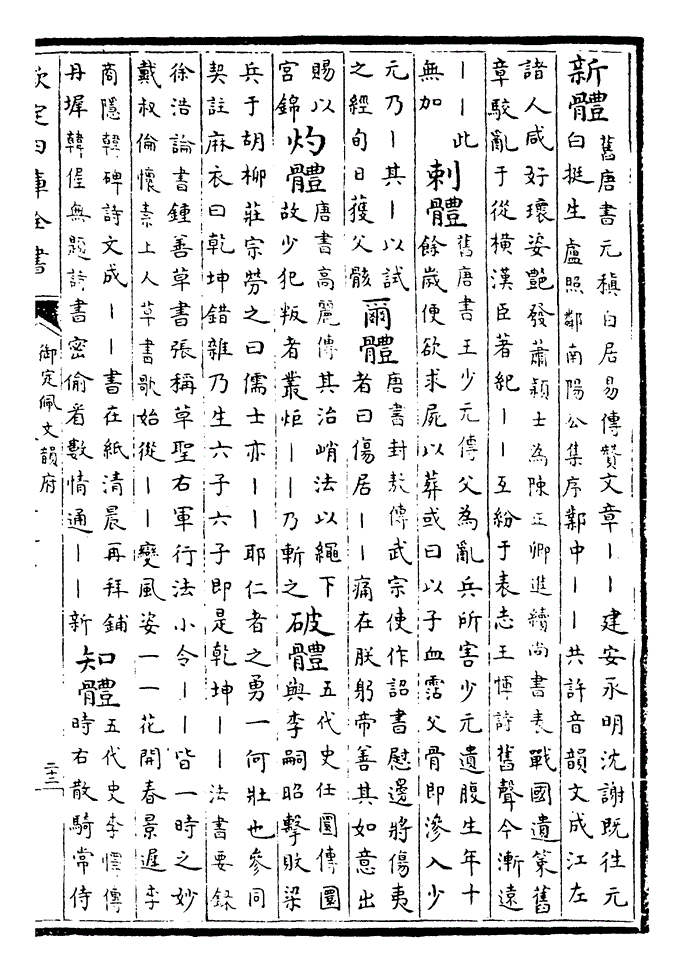 新體
舊唐書元稹白居易傳贊文章丨丨建安永明沈謝既往元
白挺生盧照鄰南陽公集序鄴中丨丨共許音韻文成江左
諸人咸好瓌姿艷發蕭穎士為陳正卿進續尚書表戰國遺策舊
章駮亂于從橫漢臣著紀丨丨互紛于表志王博詩舊聲今漸遠
丨丨此
無加
刺體
舊唐書王少元傳父為亂兵所害少元遺腹生年十
餘歲便欲求屍以葬或曰以子血霑父骨即滲入少
元乃丨其丨以試
之經旬日獲父骸
爾體
唐書封敖傳武宗使作詔書慰邊將傷夷
者曰傷居丨丨痛在朕躬帝善其如意出
賜以
宮錦
灼體
唐書高麗傳其治峭法以繩下
故少犯叛者叢炬丨丨乃斬之
破體
五代史任圜傳圜
與李嗣昭擊敗梁
兵于胡柳莊宗勞之曰儒士亦丨丨耶仁者之勇一何壯也參同
契註麻衣曰乾坤錯雜乃生六子六子即是乾坤丨丨法書要錄
徐浩論書鍾善草書張稱草聖右軍行法小令丨丨皆一時之妙
戴叔倫懷素上人草書歌始從丨丨變風姿一一花開春景遲李
商隱韓碑詩文成丨丨書在紙清晨再拜鋪
丹墀韓偓無題詩書密偷看數情通丨丨新
知體
五代史李懌傳
時右散騎常侍
欽定四庫全書
御定佩文韻府
二十三